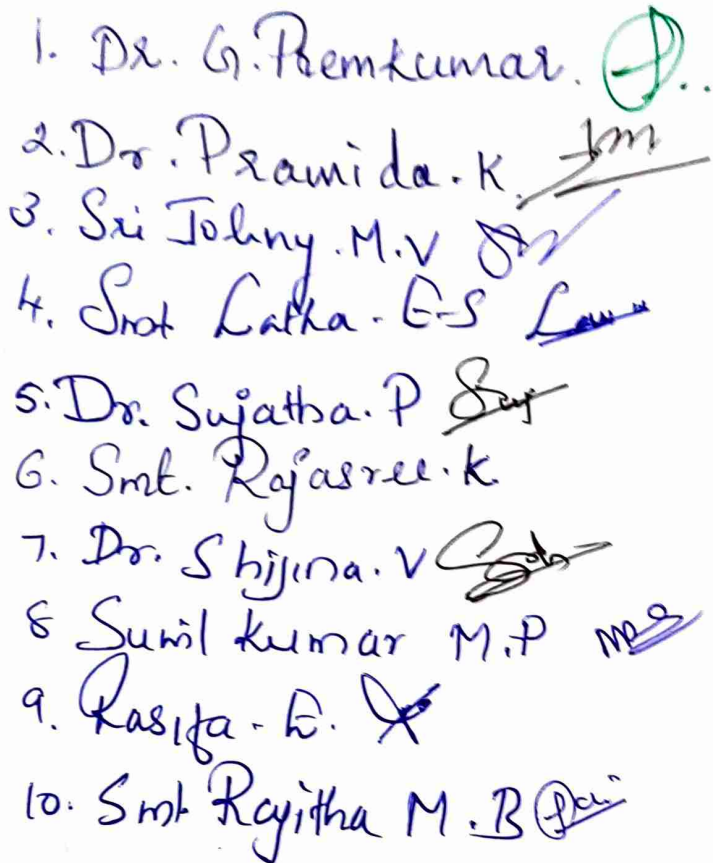 1. Dr. G. Premkumar.
2. Dr. Pramida. K.
3. Sri Johny. M.V
4. Smt Latha. E-S
5. Dr. Sujatha. P
6. Smt. Rajasree. K.
7. Dr. Shijina. V
8 Sunil kumar M.P
9. Rasifa. E.
10. Smt Rajitha M.B